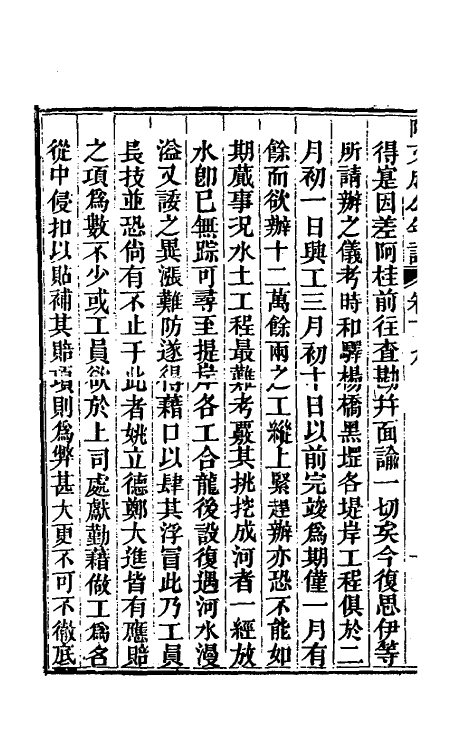 阿文成公年譜 卷十九
得寔因差阿桂前往查勘幷面諭一切矣今復思伊等
所請辦之儀考時和驛楊橋黑堽各堤岸工程俱於二
月初一日興工三月初十日以前完竣爲期僅一月有
餘而欲辦十二萬餘兩之工縱上緊趕辦亦恐不能如
期蕆事况水土工程最難考覈其挑挖成河者一經放
水卽已無踪可尋至堤岸各工合龍後設復遇河水漫
溢又諉之異漲難防遂得藉口以肆其浮冒此乃工員
長技並恐尙有不止于此者姚立德鄭大進皆有應賠
之項爲數不少或工員欲於上司處獻勤藉做工爲名
從中侵扣以貼補其賠項則爲弊甚大更不可不徹底